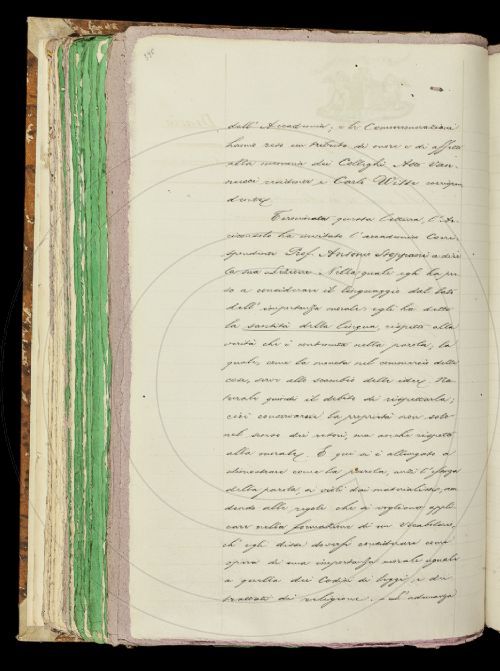 dell' Accademia; e le Commemorazioni
hanno reso un tributo di onore e di affetto
alla memoria dei Colleghi Atto Van-
nucci residente e Carlo Witte corrispon
dente.
Terminata questa lettura, l' Ar
ciconsolo ha invitato l' accademico Corri
spondente Prof. Antonio Stoppani a dire
la sua Lezione. Nella quale egli ha pre
so a considerare il linguaggio dal lato
dell' importanza morale: egli ha detto
la santità della lingua, rispetto alla
verità che è contenuta nella parola, la
quale, come la moneta nel commercio delle
cose, serve allo scambio delle idee. Na
turale quindi il debito di rispettarla;
cioè conservarne la proprietà non solo
nel senso dei retori, ma anche rispetto
alla morale. E qui si è allungato a
dimostrare come la parola, anzi l' essenza
della parola, si
dai materialisti,
alle regole che si vogliono appli
care nella formazione di un Vocabolario,
ch' egli disse doversi considerare come
opera di una importanza morale uguale
a quella dei Codici di leggi, e dei
trattati di religione.
l' adunanza